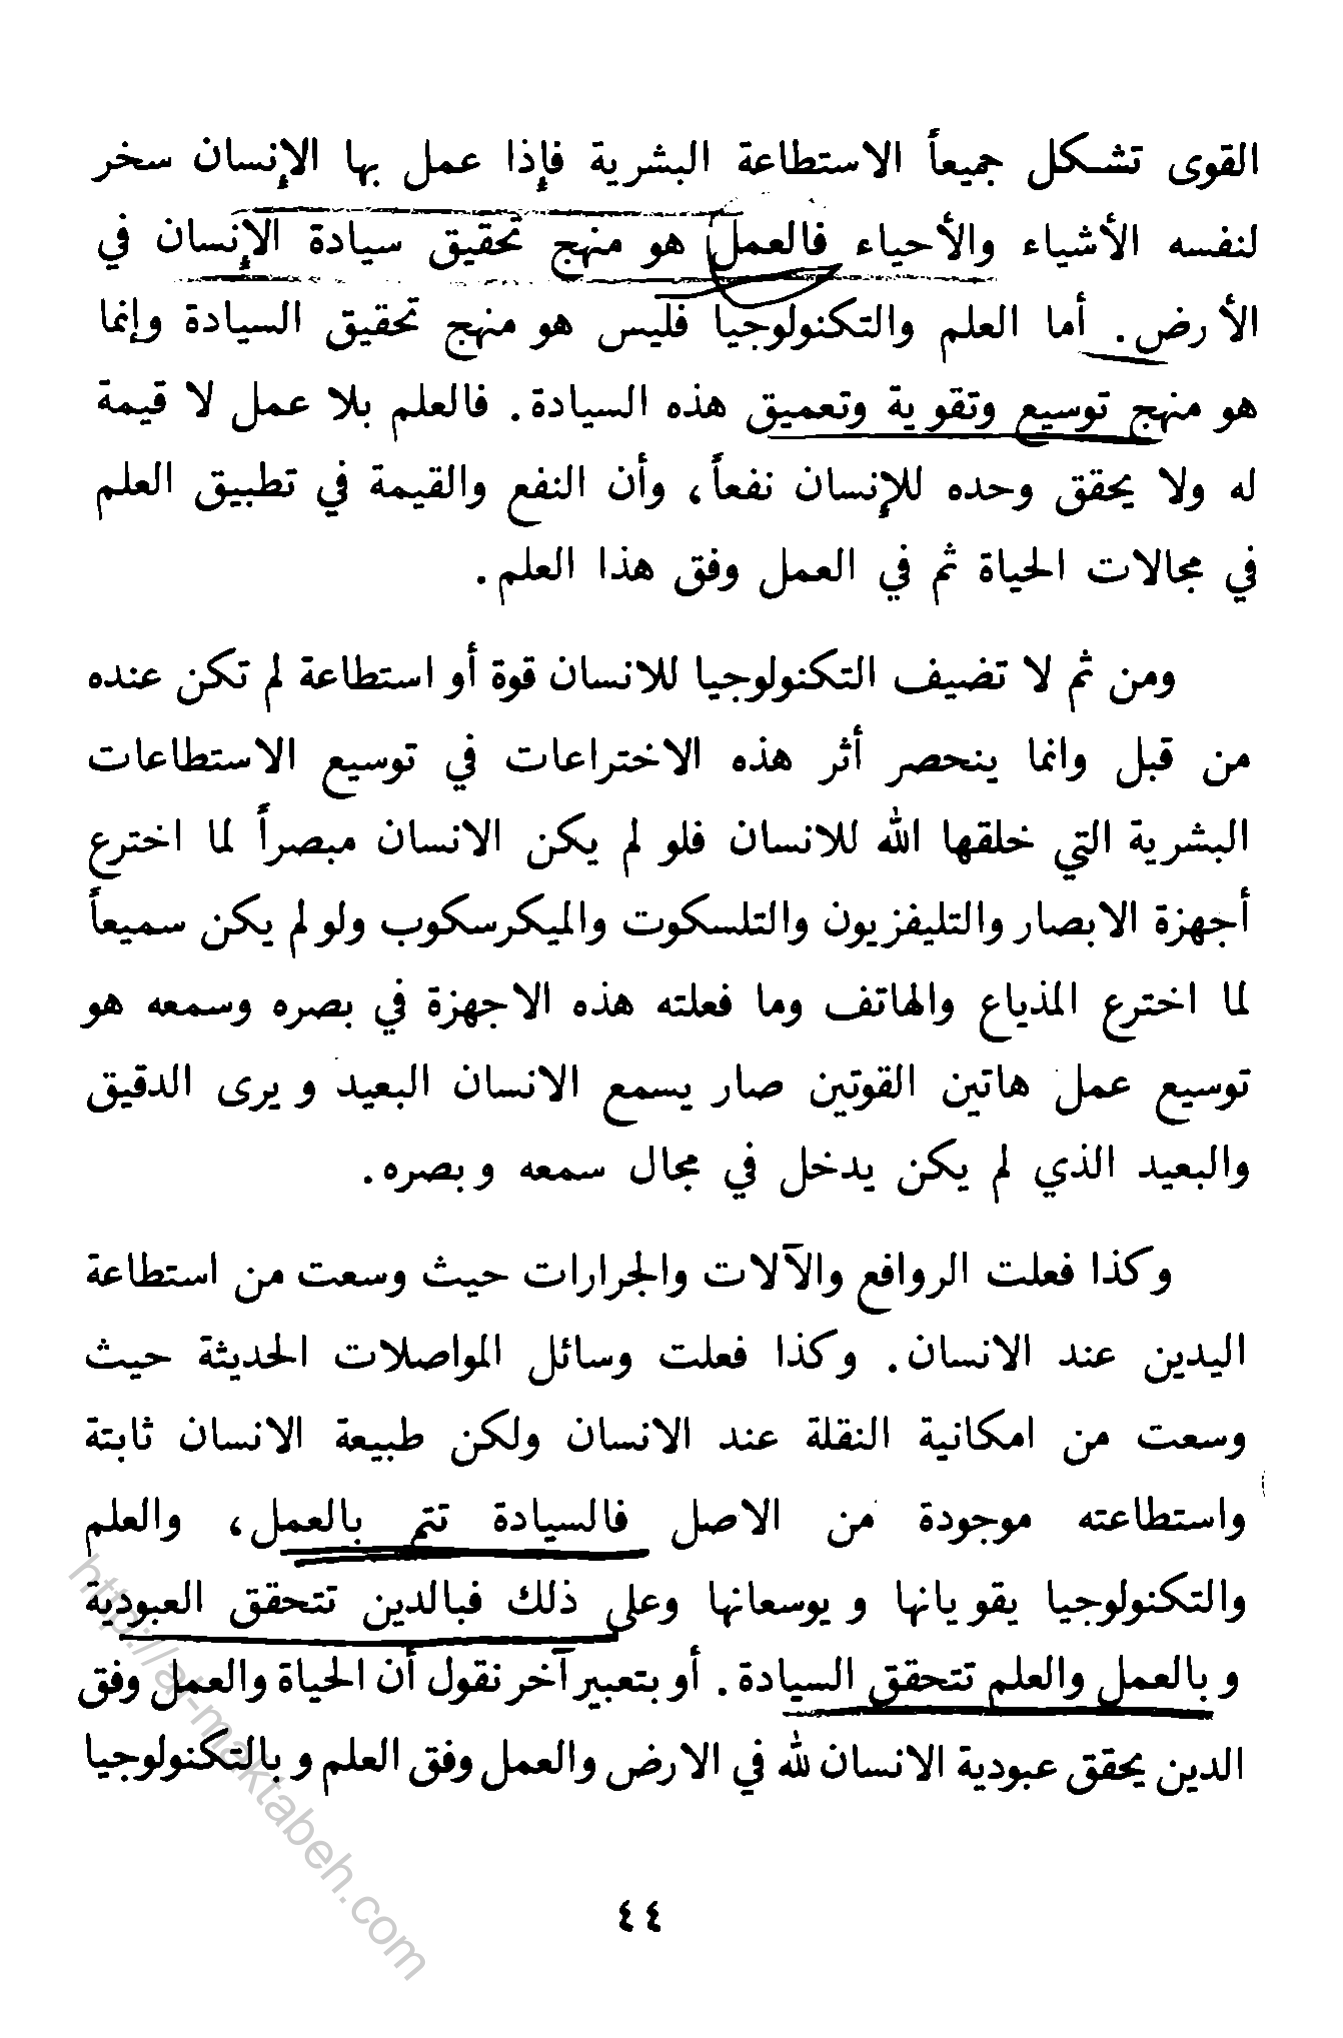 القوى تشكل جميعاً الاستطاعة البشرية فإذا عمل بها الإنسان سخر
لنفسه الأشياء والأحياء فالعمل هو منهج تحقيق سيادة الإنسان في
الأرض. أما العلم والتكنولوجيا فليس هو منهج تحقيق السيادة وإنما
هو منهج توسيع وتقوية وتعميق هذه السيادة. فالعلم بلا عمل لا قيمة
له ولا يحقق وحده للإنسان نفعاً، وأن النفع والقيمة في تطبيق العلم
في مجالات الحياة ثم في العمل وفق هذا العلم.
ومن ثم لا تضيف التكنولوجيا للانسان قوة أو استطاعة لم تكن عنده
من قبل وانما ينحصر أثر هذه الاختراعات في توسيع الاستطاعات
البشرية التي خلقها الله للانسان فلو لم يكن الانسان مبصراً لما اخترع
أجهزة الابصار والتليفزيون والتلسكوت والميكرسكوب ولو لم يكن سميعاً
لما اخترع المذياع والهاتف وما فعلته هذه الاجهزة في بصره وسمعه هو
توسيع عمل هاتين القوتين صار يسمع الانسان البعيد ويرى الدقيق
والبعيد الذي لم يكن يدخل في مجال سمعه وبصره.
وكذا فعلت الروافع والآلات والجرارات حيث وسعت من استطاعة
اليدين عند الانسان. وكذا فعلت وسائل المواصلات الحديثة حيث
وسعت من امكانية النقلة عند الانسان ولكن طبيعة الانسان ثابتة
واستطاعته موجودة من الاصل فالسيادة تتم بالعمل، والعلم
والتكنولوجيا يقويانها ويوسعانها وعلى ذلك فبالدين تتحقق العبودية
وبالعمل والعلم تتحقق السيادة. أو بتعبير آخر نقول أن الحياة والعمل وفق
الدين يحقق عبودية الانسان لله في الارض والعمل وفق العلم وبالتكنولوجيا
٤٤
http://al-maktabeh.com